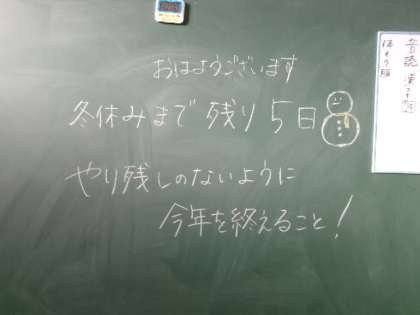 おはようございます
冬休みまで残り5日
やり残しのないように
今年を終えること!
音読
体そう服